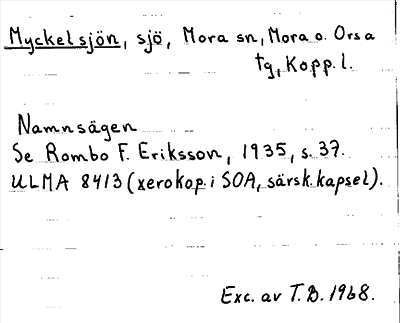 Myckelsjön, sjö, Mora sn, Mora o. Orsa
tg, Kopp. l.
Namnsägen
Se Rombo F. Eriksson, 1935, s. 37.
ULMA 8413 (xerokop. i SOA, särsk. kapsel).
Exc. av T. B. 1968.